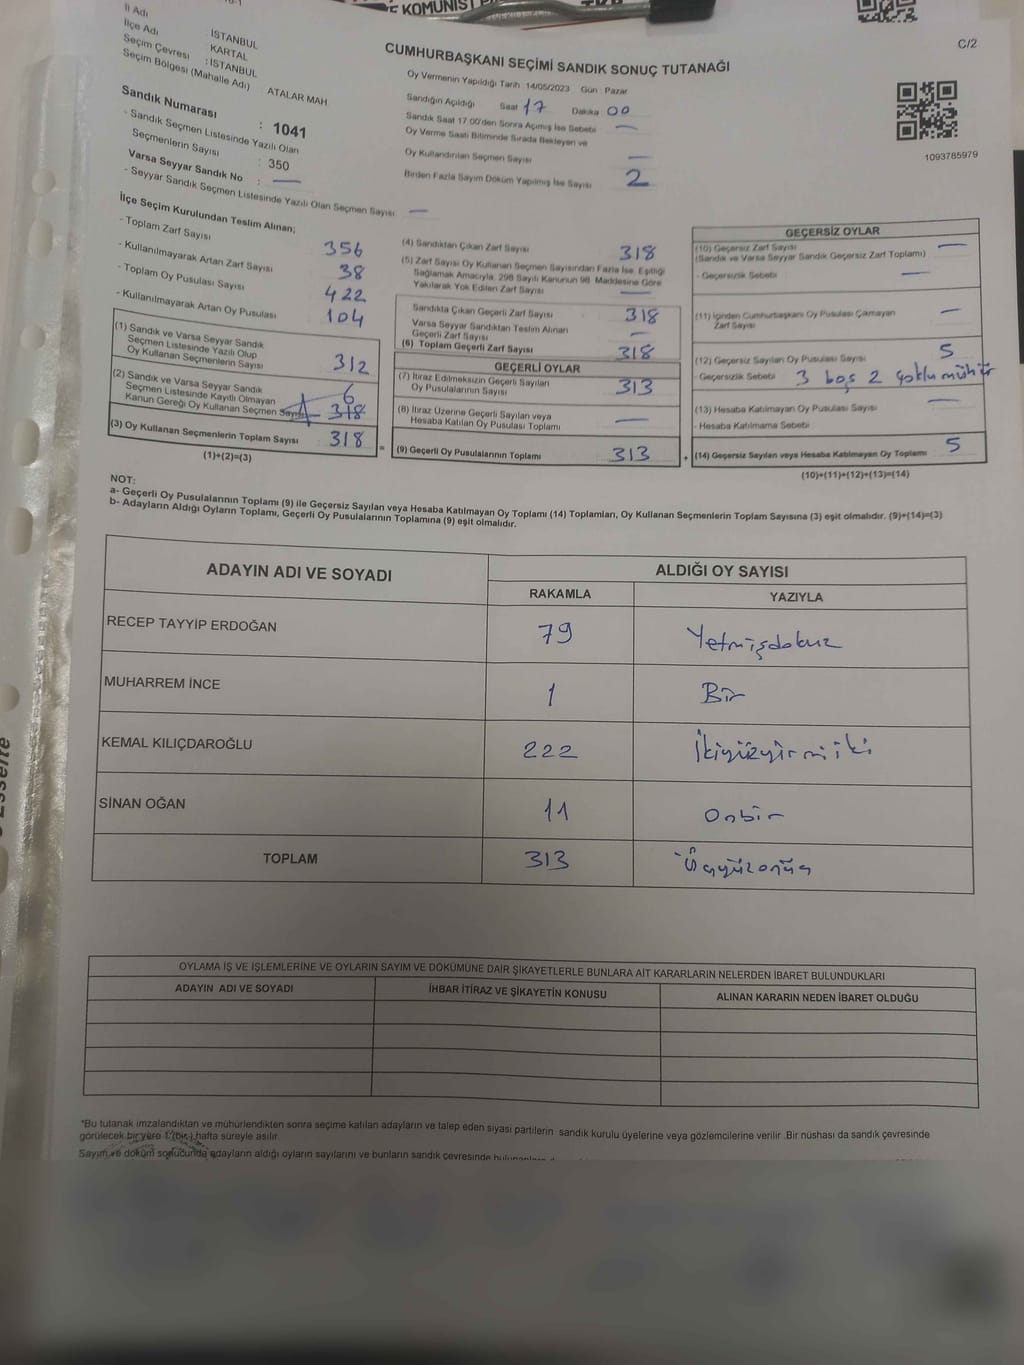 E KOMÜNİST
C/2
İl Adı
İlçe Adı İSTANBUL
Seçim Çevresi KARTAL
Seçim Bölgesi (Mahalle Adı) : İSTANBUL
ATALAR MAH
CUMHURBAŞKANI SEÇİMİ SANDIK SONUÇ TUTANAĞI
Oy Vermenin Yapıldığı Tarih :14/05/2023 Gün : Pazar
Sandığın Açıldığı Saat 17 Dakika 00
Sandık Saat 17:00'den Sonra Açılmış İse Sebebi —
Oy Verme Saati Bitiminde Sırada Bekleyen ve
Oy Kullandırılan Seçmen Sayısı —
Birden Fazla Sayım Döküm Yapılmış İse Sayısı 2
1093785979
Sandık Numarası : 1041
- Sandık Seçmen Listesinde Yazılı Olan
Seçmenlerin Sayısı : 350
Varsa Seyyar Sandık No : —
- Seyyar Sandık Seçmen Listesinde Yazılı Olan Seçmen Sayısı —
İlçe Seçim Kurulundan Teslim Alınan;
- Toplam Zarf Sayısı 356
- Kullanılmayarak Artan Zarf Sayısı 38
- Toplam Oy Pusulası Sayısı 422
- Kullanılmayarak Artan Oy Pusulası 104
(1) Sandık ve Varsa Seyyar Sandık
Seçmen Listesinde Yazılı Olup
Oy Kullanan Seçmenlerin Sayısı 312
(2) Sandık ve Varsa Seyyar Sandık
Seçmen Listesinde Kayıtlı Olmayan 6
Kanun Gereği Oy Kullanan Seçmen Sayısı 318
(3) Oy Kullanan Seçmenlerin Toplam Sayısı 318 =
(1)+(2)=(3)
(4) Sandıktan Çıkan Zarf Sayısı 318
(5) Zarf Sayısı Oy Kullanan Seçmen Sayısından Fazla İse, Eşitliği
Sağlamak Amacıyla, 298 Sayılı Kanunun 98. Maddesine Göre
Yakılarak Yok Edilen Zarf Sayısı —
Sandıkta Çıkan Geçerli Zarf Sayısı 318
Varsa Seyyar Sandıktan Teslim Alınan
Geçerli Zarf Sayısı —
(6) Toplam Geçerli Zarf Sayısı 318
GEÇERLİ OYLAR
(7) İtiraz Edilmeksizin Geçerli Sayılan
Oy Pusulalarının Sayısı 313
(8) İtiraz Üzerine Geçerli Sayılan veya
Hesaba Katılan Oy Pusulası Toplamı —
(9) Geçerli Oy Pusulalarının Toplamı 313 +
GEÇERSİZ OYLAR
(10) Geçersiz Zarf Sayısı —
(Sandık ve Varsa Seyyar Sandık Geçersiz Zarf Toplamı)
- Geçersizlik Sebebi —
(11) İçinden Cumhurbaşkanı Oy Pusulası Çıkmayan —
Zarf Sayısı
(12) Geçersiz Sayılan Oy Pusulası Sayısı 5
- Geçersizlik Sebebi 3 boş 2 çoklu mühür
(13) Hesaba Katılmayan Oy Pusulası Sayısı —
- Hesaba Katılmama Sebebi
(14) Geçersiz Sayılan veya Hesaba Katılmayan Oy Toplamı 5
(10)+(11)+(12)+(13)=(14)
NOT:
a- Geçerli Oy Pusulalarının Toplamı (9) ile Geçersiz Sayılan veya Hesaba Katılmayan Oy Toplamı (14) Toplamları, Oy Kullanan Seçmenlerin Toplam Sayısına (3) eşit olmalıdır. (9)+(14)=(3)
b- Adayların Aldığı Oyların Toplamı, Geçerli Oy Pusulalarının Toplamına (9) eşit olmalıdır.
ADAYIN ADI VE SOYADI ALDIĞI OY SAYISI
RAKAMLA YAZIYLA
RECEP TAYYİP ERDOĞAN 79 Yetmişdokuz
MUHARREM İNCE 1 Bir
KEMAL KILIÇDAROĞLU 222 İkiyüzyirmiiki
SİNAN OĞAN 11 Onbir
TOPLAM 313 Üçyüzonüç
OYLAMA İŞ VE İŞLEMLERİNE VE OYLARIN SAYIM VE DÖKÜMÜNE DAİR ŞİKAYETLERLE BUNLARA AİT KARARLARIN NELERDEN İBARET BULUNDUKLARI
ADAYIN ADI VE SOYADI İHBAR İTİRAZ VE ŞİKAYETİN KONUSU ALINAN KARARIN NEDEN İBARET OLDUĞU
*Bu tutanak imzalandıktan ve mühürlendikten sonra seçime katılan adayların ve talep eden siyasi partilerin sandık kurulu üyelerine veya gözlemcilerine verilir .Bir nüshası da sandık çevresinde
görülecek bir yere 1 (bir) hafta süreyle asılır.
Sayım ve döküm sonucunda adayların aldığı oyların sayılarını ve bunların sandık çevresinde